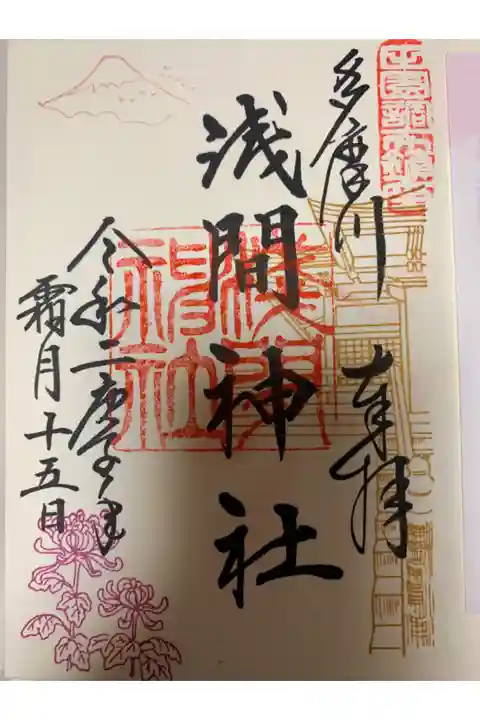 多摩川 奉拝
浅間神社
令和二庚子年
霜月十五日
浅間神社